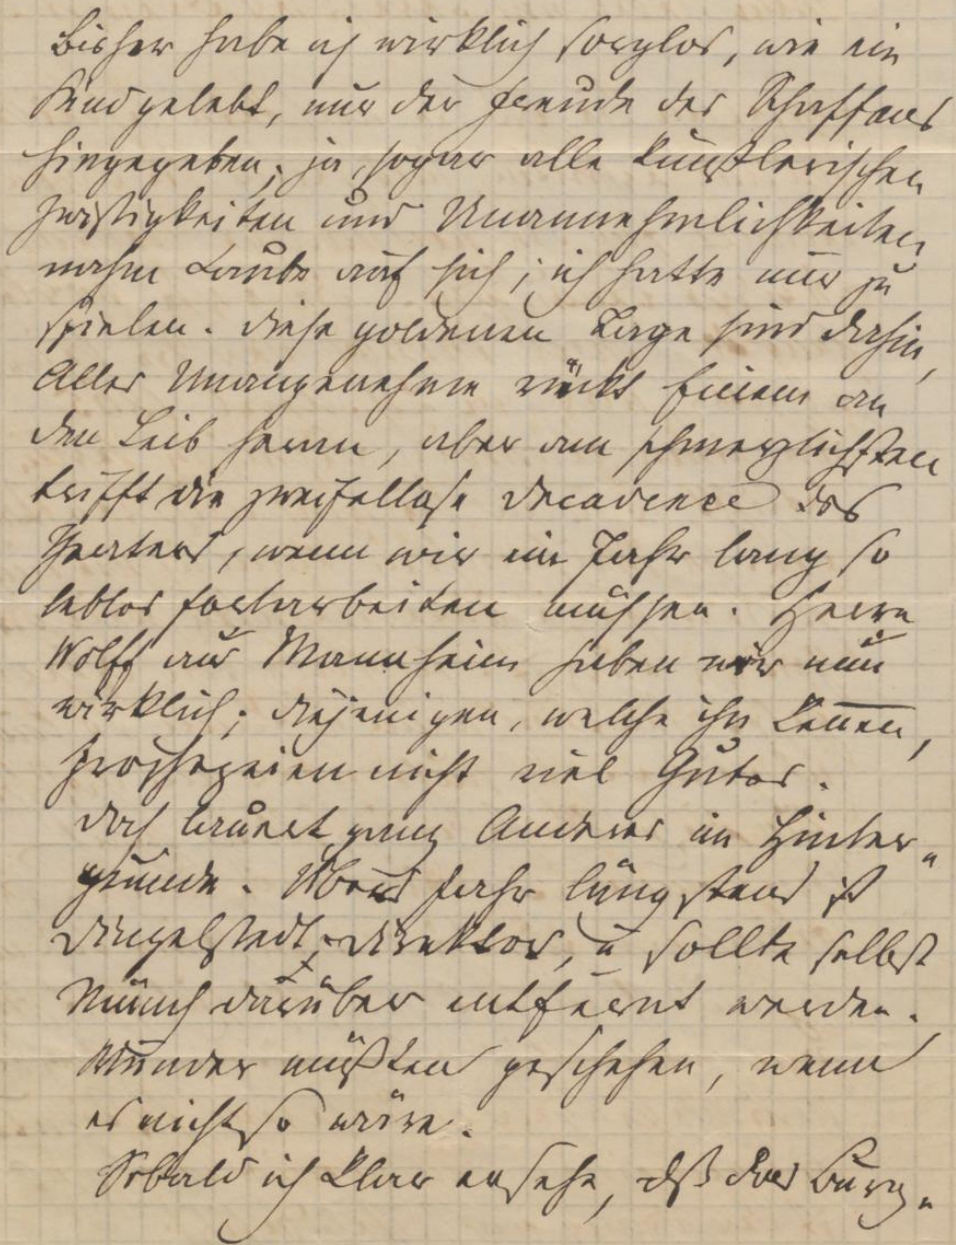 Bisher habe ich wirklich sorglos, wie ein
Kind gelebt, nur der Freude des Schaffens
hingegeben; ja, sogar alle künstlerischen
Zwistigkeiten und Unannehmlichkeiten
nahm Laube auf sich; ich hatte nur zu
spielen. Diese goldenen Tage sind dahin,
Alles Unangenehme rückt Einem an
den Leib heran, aber am schmerzlichsten
trifft die zweifellose Decadence des
Theaters, wenn wir ein Jahr lang so
leblos fortarbeiten müssen. Herrn
Wolff aus Mannheim haben wir nun
wirklich; diejenigen, welche ihn kennen,
prophezeien nicht viel Gutes.
Doch lauert ganz Anderes im Hinter-
grunde. Übers Jahr längstens ist
Dingelstedt Direktor, u sollte selbst
Münch darüber entfernt werden.
Wunder müßten geschehen, wenn
es nicht so wäre.
Sobald ich klar ersehe, dß das Burg-